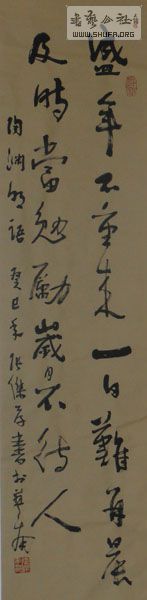 盛年不重来一日難再晨
及時當勉勵歲月不待人
陶渊明語 癸巳年 張傑
書藝公社
WWW.SHUFA.ORG